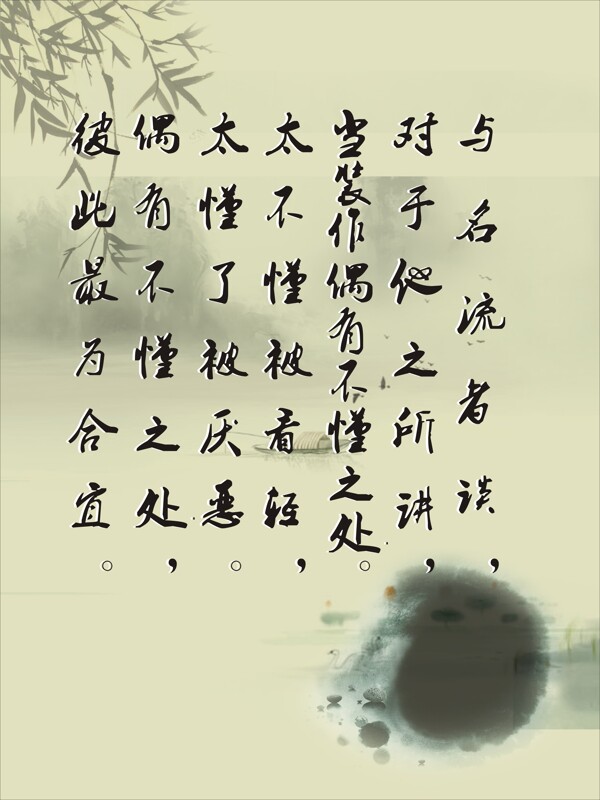 与名流者谈，
对于他之所讲，
当装作偶有不懂之处。
太不懂被看轻，
太懂了被厌恶。
偶有不懂之处，
彼此最为合宜。